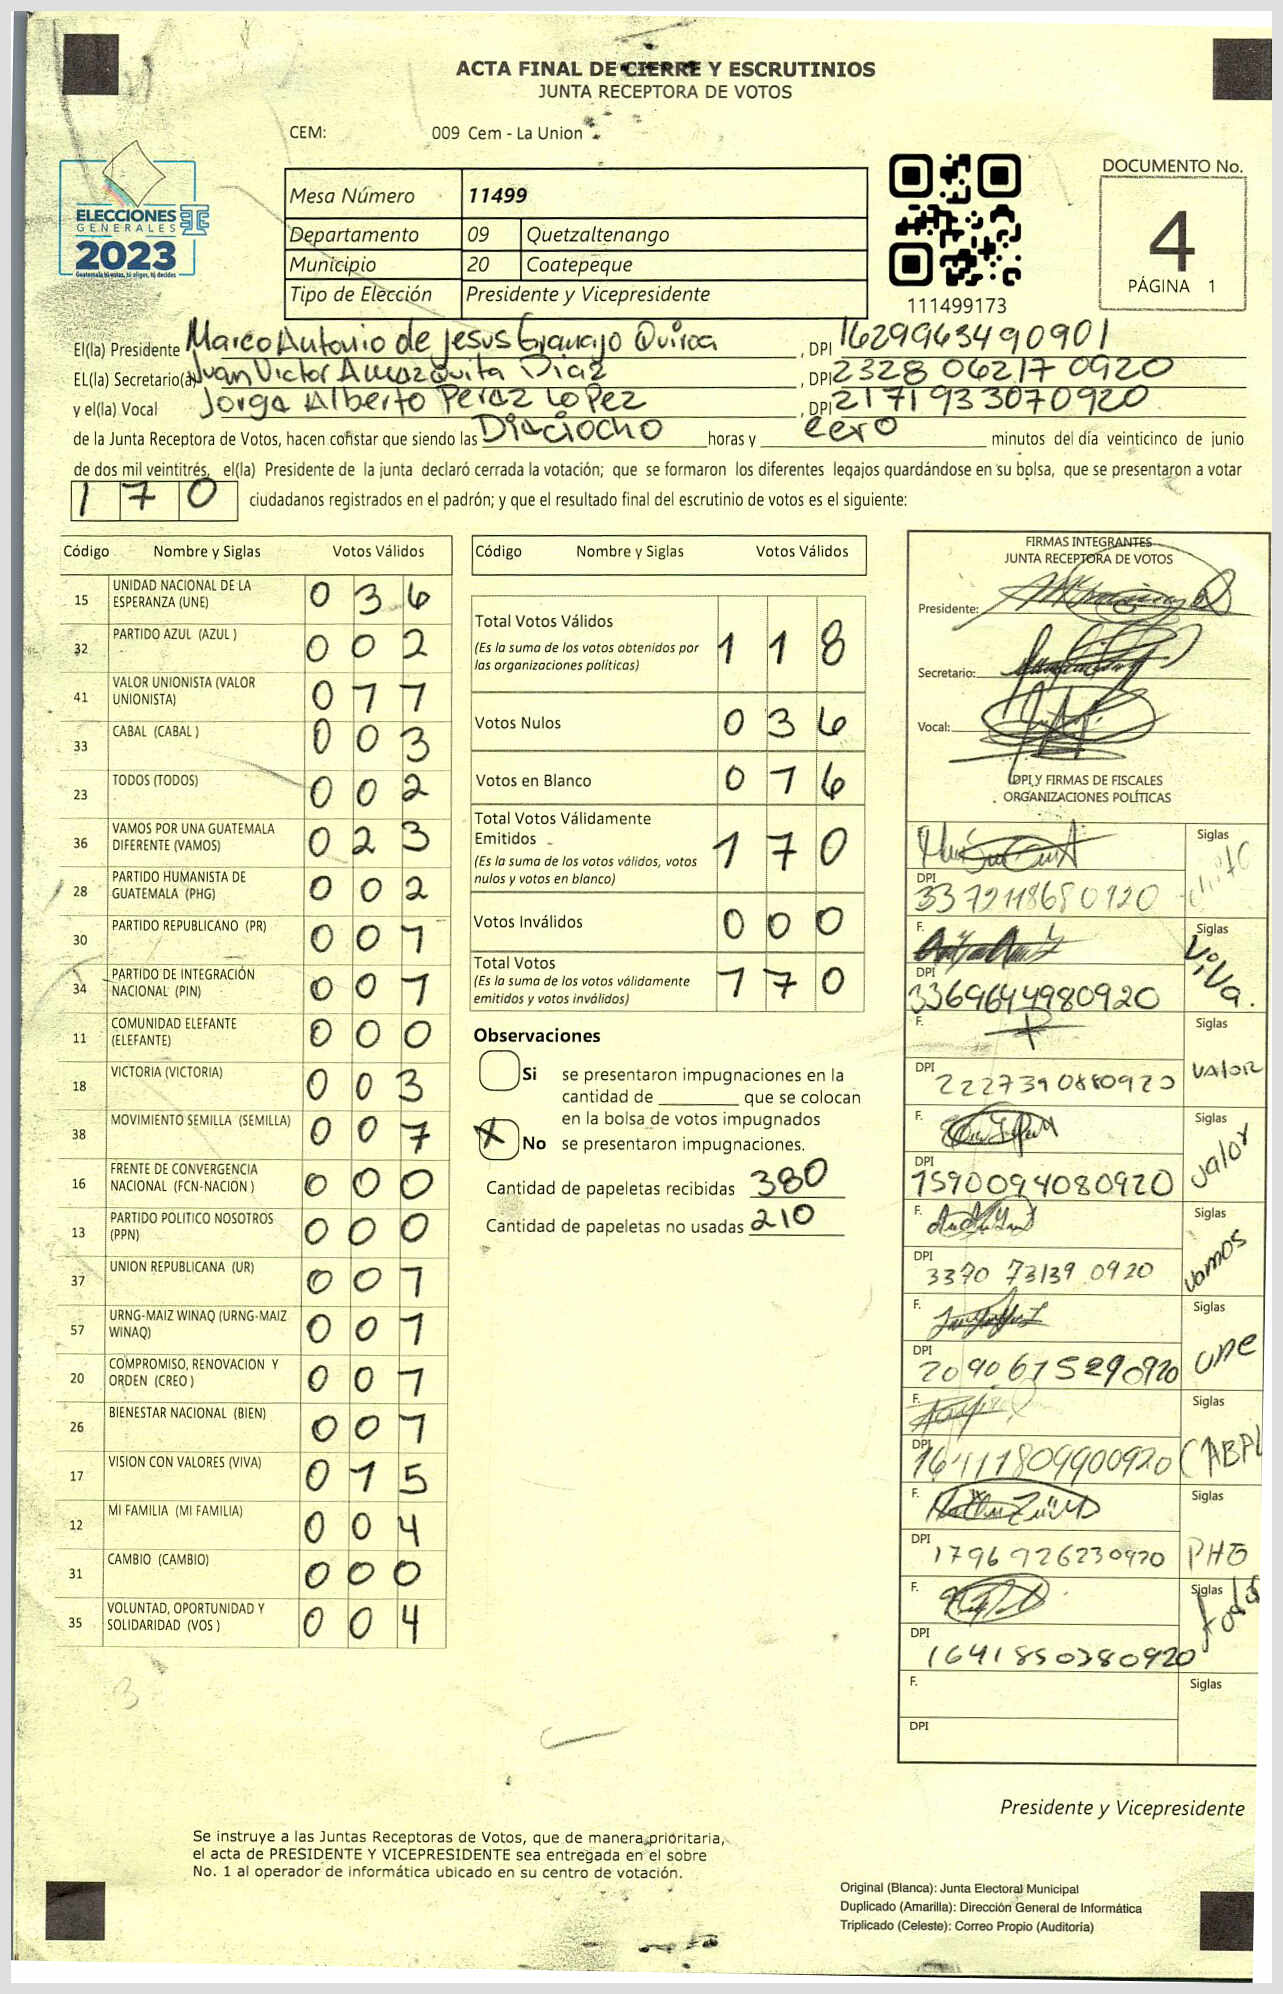 ACTA FINAL DE CIERRE Y ESCRUTINIOS
JUNTA RECEPTORA DE VOTOS
CEM: 009 Cem - La Union
ELECCIONES
GENERALES
2023
Guatemala tú votas, tú eliges, tú decides
Mesa Número 11499
Departamento 09 Quetzaltenango
Municipio 20 Coatepeque
Tipo de Elección Presidente y Vicepresidente
111499173
DOCUMENTO No.
4
PÁGINA 1
El(la) Presidente Marco Antonio de Jesus Quiroa , DPI 1629963490901
EL(la) Secretario(a) Juan Victor Amezquita Diaz , DPI 2328 06217 0920
y el(la) Vocal Jorge Alberto Perez Lopez , DPI 2171933070920
de la Junta Receptora de Votos, hacen constar que siendo las Dieciocho horas y cero minutos del día veinticinco de junio
de dos mil veintitrés, el(la) Presidente de la junta declaró cerrada la votación; que se formaron los diferentes legajos guardándose en su bolsa, que se presentaron a votar
170 ciudadanos registrados en el padrón; y que el resultado final del escrutinio de votos es el siguiente:
Código Nombre y Siglas Votos Válidos
15 UNIDAD NACIONAL DE LA ESPERANZA (UNE) 0 3 6
32 PARTIDO AZUL (AZUL ) 0 0 2
41 VALOR UNIONISTA (VALOR UNIONISTA) 0 1 1
33 CABAL (CABAL ) 0 0 3
23 TODOS (TODOS) 0 0 2
36 VAMOS POR UNA GUATEMALA DIFERENTE (VAMOS) 0 2 3
28 PARTIDO HUMANISTA DE GUATEMALA (PHG) 0 0 2
30 PARTIDO REPUBLICANO (PR) 0 0 1
34 PARTIDO DE INTEGRACIÓN NACIONAL (PIN) 0 0 1
11 COMUNIDAD ELEFANTE (ELEFANTE) 0 0 0
18 VICTORIA (VICTORIA) 0 0 3
38 MOVIMIENTO SEMILLA (SEMILLA) 0 0 7
16 FRENTE DE CONVERGENCIA NACIONAL (FCN-NACION ) 0 0 0
13 PARTIDO POLITICO NOSOTROS (PPN) 0 0 0
37 UNION REPUBLICANA (UR) 0 0 1
57 URNG-MAIZ WINAQ (URNG-MAIZ WINAQ) 0 0 1
20 COMPROMISO, RENOVACION Y ORDEN (CREO ) 0 0 1
26 BIENESTAR NACIONAL (BIEN) 0 0 1
17 VISION CON VALORES (VIVA) 0 1 5
12 MI FAMILIA (MI FAMILIA) 0 0 4
31 CAMBIO (CAMBIO) 0 0 0
35 VOLUNTAD, OPORTUNIDAD Y SOLIDARIDAD (VOS ) 0 0 4
Código Nombre y Siglas Votos Válidos
Total Votos Válidos 1 1 8
(Es la suma de los votos obtenidos por las organizaciones políticas)
Votos Nulos 0 3 6
Votos en Blanco 0 1 6
Total Votos Válidamente Emitidos 1 7 0
(Es la suma de los votos válidos, votos nulos y votos en blanco)
Votos Inválidos 0 0 0
Total Votos 1 7 0
(Es la suma de los votos válidamente emitidos y votos inválidos)
Observaciones
Si se presentaron impugnaciones en la
cantidad de ________ que se colocan
en la bolsa de votos impugnados
X No se presentaron impugnaciones.
Cantidad de papeletas recibidas 380
Cantidad de papeletas no usadas 210
FIRMAS INTEGRANTES
JUNTA RECEPTORA DE VOTOS
Presidente:
Secretario:
Vocal:
DPI Y FIRMAS DE FISCALES
ORGANIZACIONES POLÍTICAS
Siglas
DPI
F. Siglas Viva.
DPI 3369644980920
F. Siglas valor
DPI 2227390880920
F. Siglas valor
DPI 1590094080920
F. Siglas vamos
DPI 3370 73139 0920
F. Siglas une
DPI 2090675290920
F. Siglas
DPI
F. Siglas PHG
DPI 1796926230920
F. Siglas todos
DPI 1641850380920
F. Siglas
DPI
Presidente y Vicepresidente
Se instruye a las Juntas Receptoras de Votos, que de manera prioritaria,
el acta de PRESIDENTE Y VICEPRESIDENTE sea entregada en el sobre
No. 1 al operador de informática ubicado en su centro de votación.
Original (Blanca): Junta Electoral Municipal
Duplicado (Amarilla): Dirección General de Informática
Triplicado (Celeste): Correo Propio (Auditoría)